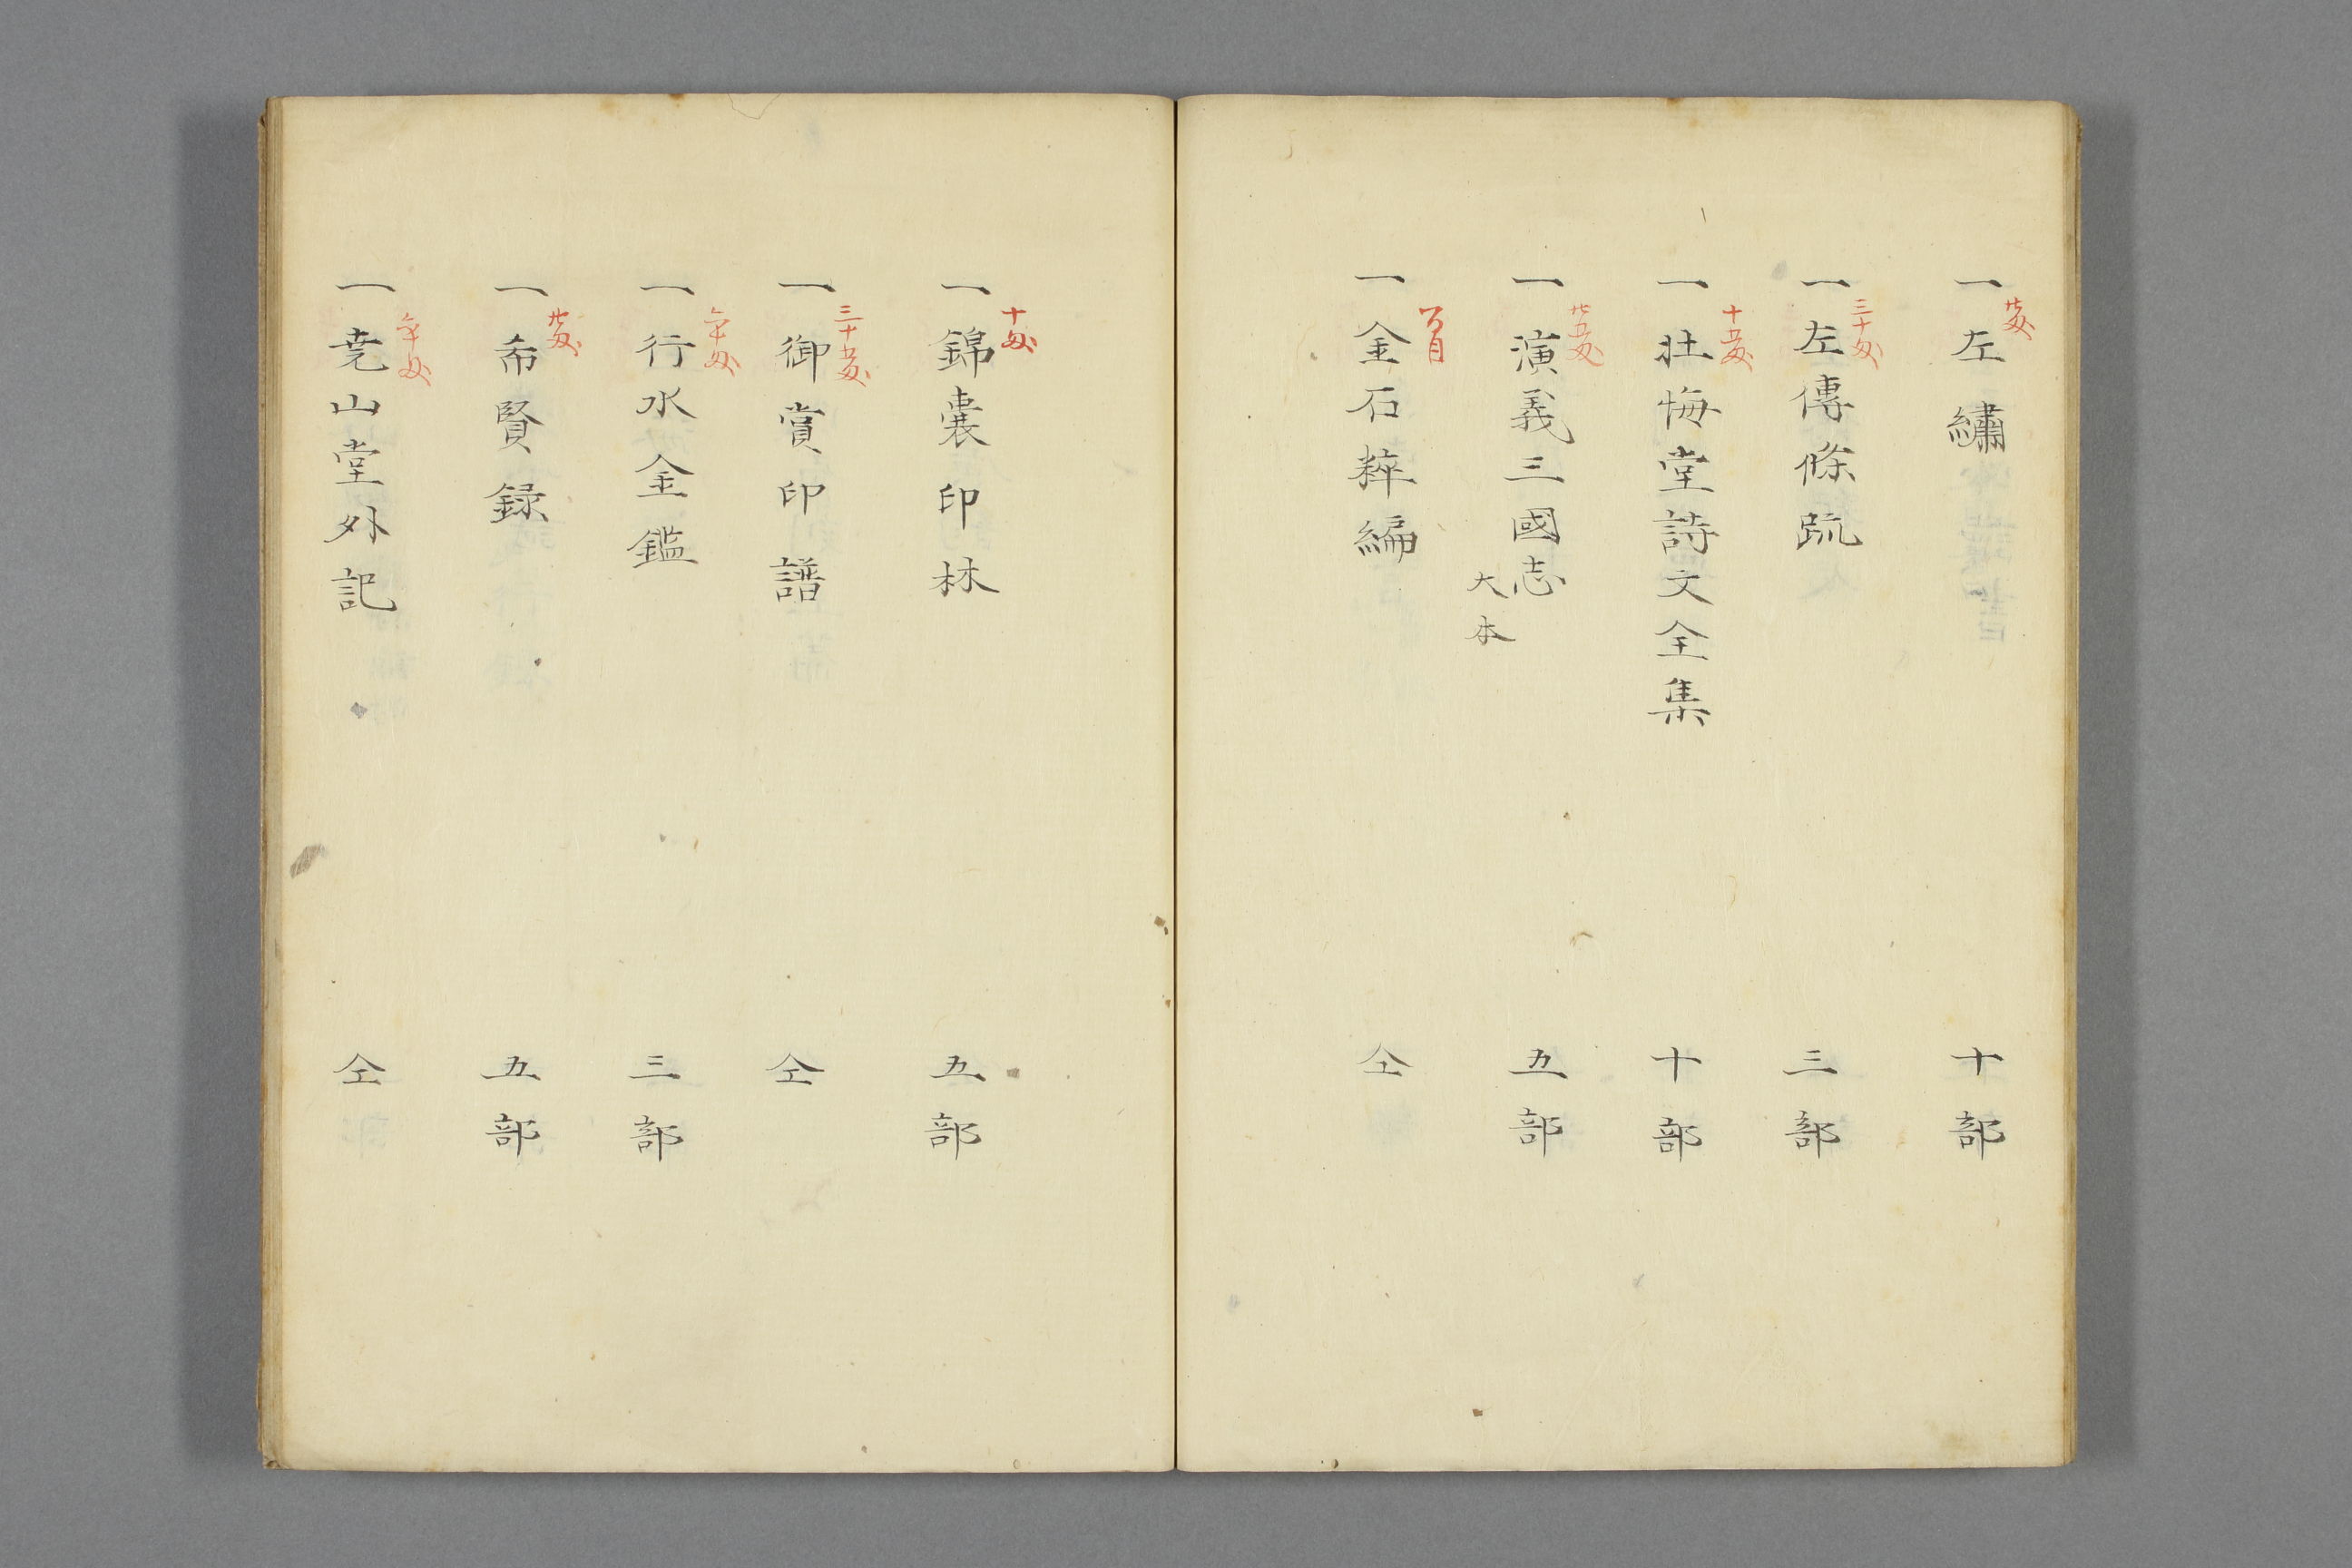 一左繡 十部
廿匁
一左傳條䟽 三部
三十匁
一壮悔堂詩文全集 十部
十五匁
一演義三國志 大本 五部
廿五匁
一金石粹編 仝
百目
一錦囊印林 五部
十匁
一御賞印譜 仝
三十五匁
一行水金鑑 三部
一希賢録 五部
廿匁
一尭山堂外記 仝